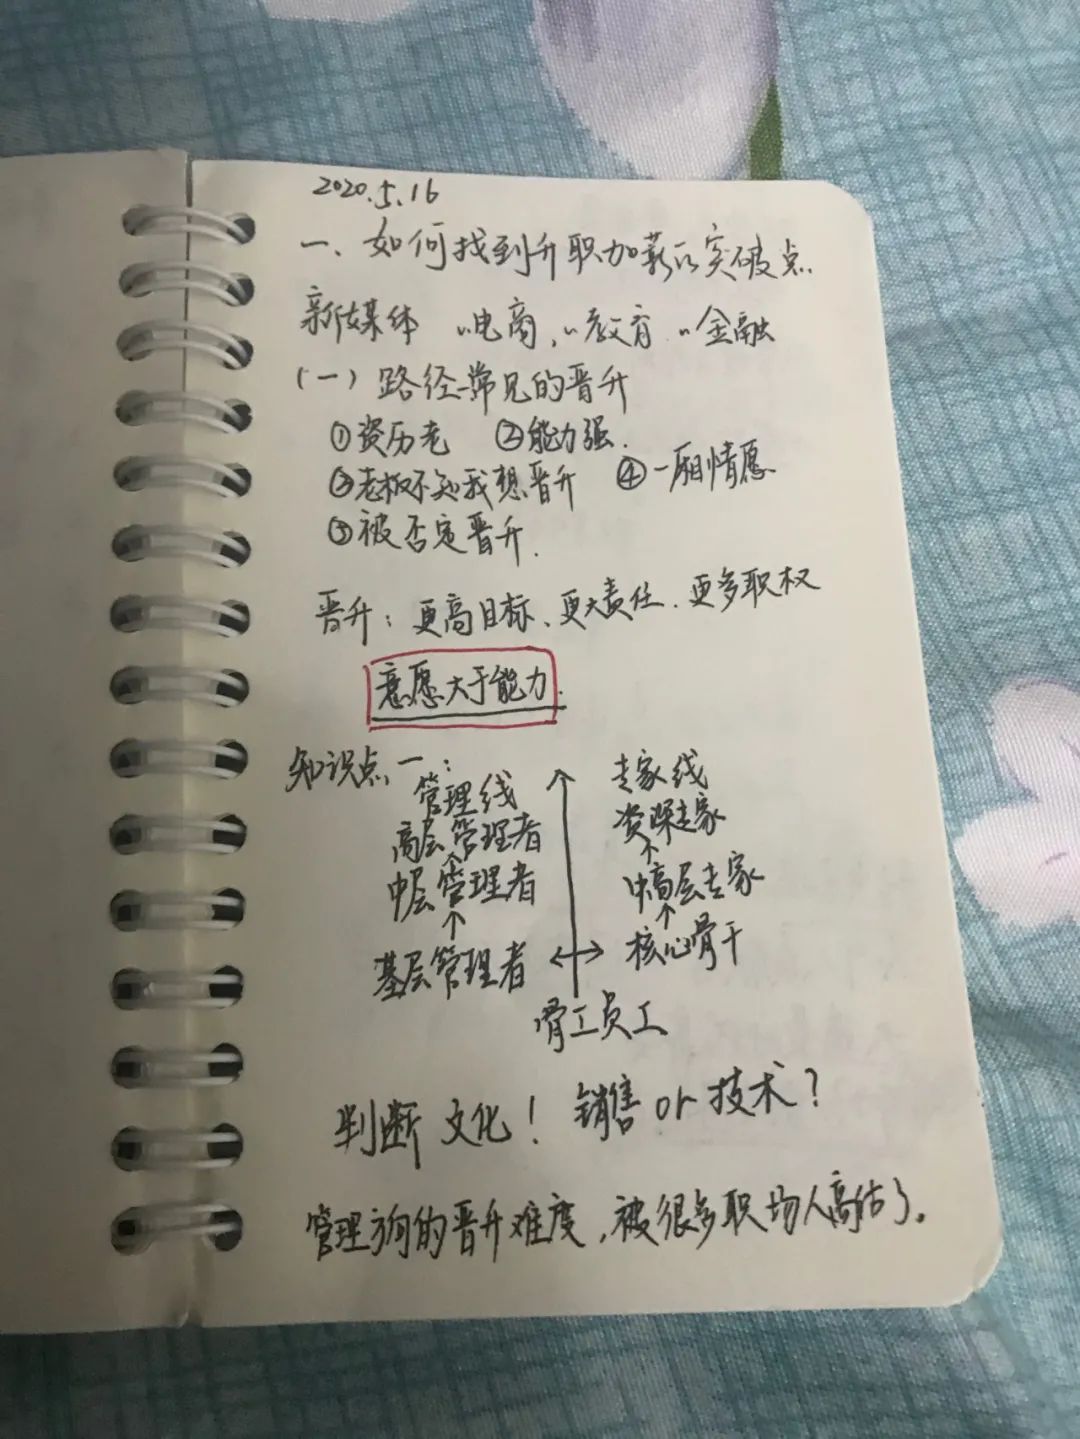 2020.5.16
一、如何找到升职加薪的突破点
新媒体 "电商, "教育 "金融
(一) 路径-常见的晋升
①资历老 ②能力强.
③老板不知我想晋升 ④一厢情愿
⑤被否定晋升.
晋升: 更高目标、更大责任、更多职权
意愿大于能力.
知识点一:
管理线 专家线
高层管理者 资深专家
中层管理者 中高层专家
基层管理者 核心骨干
骨工员工
判断文化! 销售or技术?
管理方向的晋升难度,被很多职场人高估了。